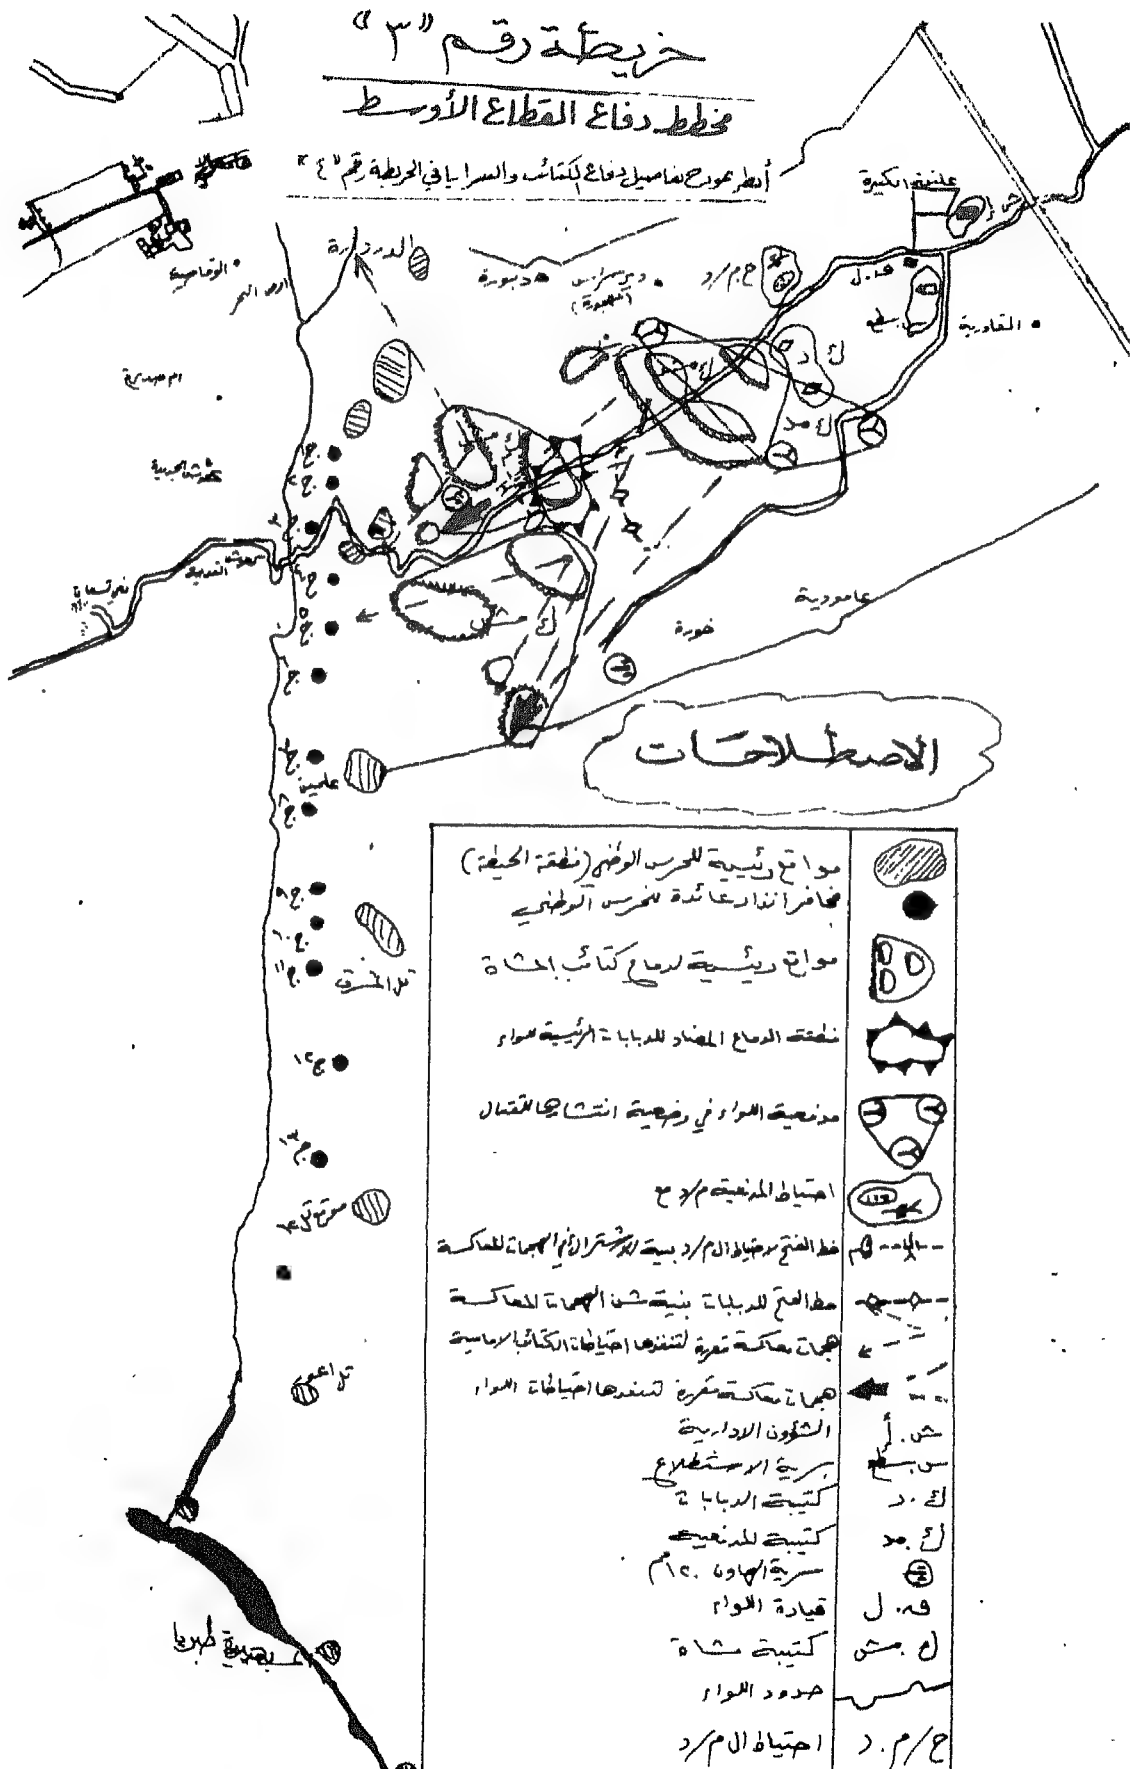 خريطة رقم "٣"
مخطط دفاع القطاع الأوسط
أنظر نموذج تفاصيل دفاع الكتائب والسرايا في الخريطة رقم "٤"
عليقة الكبيرة
ش.أ
الدردارة
دبورة
ح.م/د
ق.ل
س.سطع
القادرية
ك.د
ك.مد
ك
ج١
ج٢
ج٣
ج٤
ج٥
ج٦
ج٧
ج٨
ج٩
ج١٠
ج١١
ج١٢
ج١٣
ك مش
عامودية
خورة
علمين
تل المشرق
الاصطلاحات
مواقع رئيسية للحرس الوطني (منطقة الحيطة)
مخافر انذار عائدة للحرس الوطني
مواقع رئيسية لدفاع كتائب المشاة
منطقة الدفاع المضاد للدبابات الرئيسية للواء
مدفعية اللواء في وضعية انتشارها للقتال
احتياط المدفعية م/د مع
خط الفتح لاحتياط ال م/د بنية الاشتراك في الهجمات المعاكسة
خط الفتح للدبابات بنية شن الهجمات المعاكسة
هجمات معاكسة مقررة لتنفذها احتياطات الكتائب الامامية
هجمات معاكسة مقررة لتنفذها احتياطات اللواء
ش.أ الشؤون الادارية
س.سطع سرية الاستطلاع
ك.د كتيبة الدبابات
ك.مد كتيبة المدفعية
سرية الهاون ١٢٠مم
ق.ل قيادة اللواء
ك.مش كتيبة مشاة
حدود اللواء
ح/م.د احتياط ال م/د
طبريا